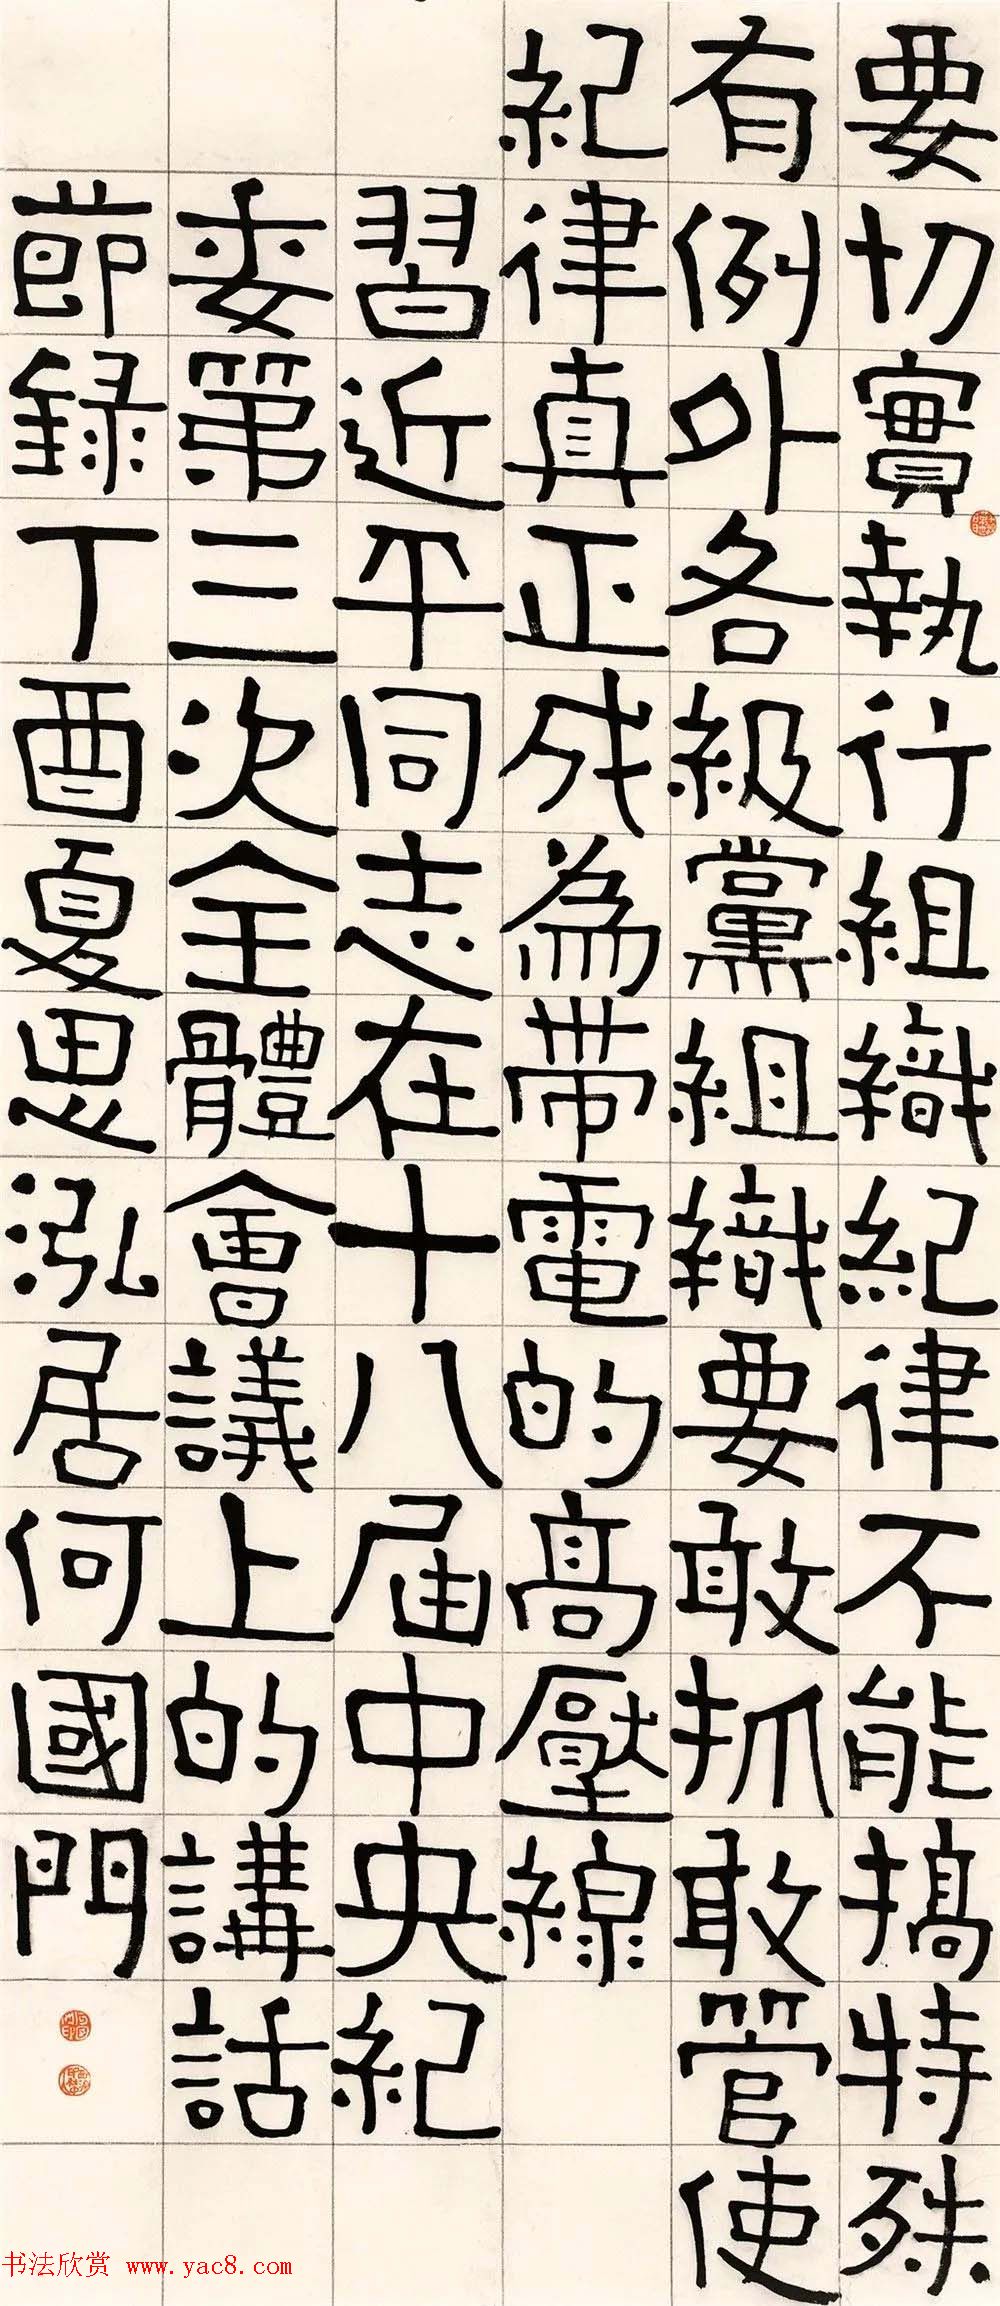 要切實執行組織紀律不能搞特殊
有例外各級黨組織要敢抓敢管使
紀律真正成為帶電的高壓線
習近平同志在十八屆中央紀
委第三次全體會議上的講話
節録丁酉夏思泓居何國門
书法欣赏 www.yac8.com